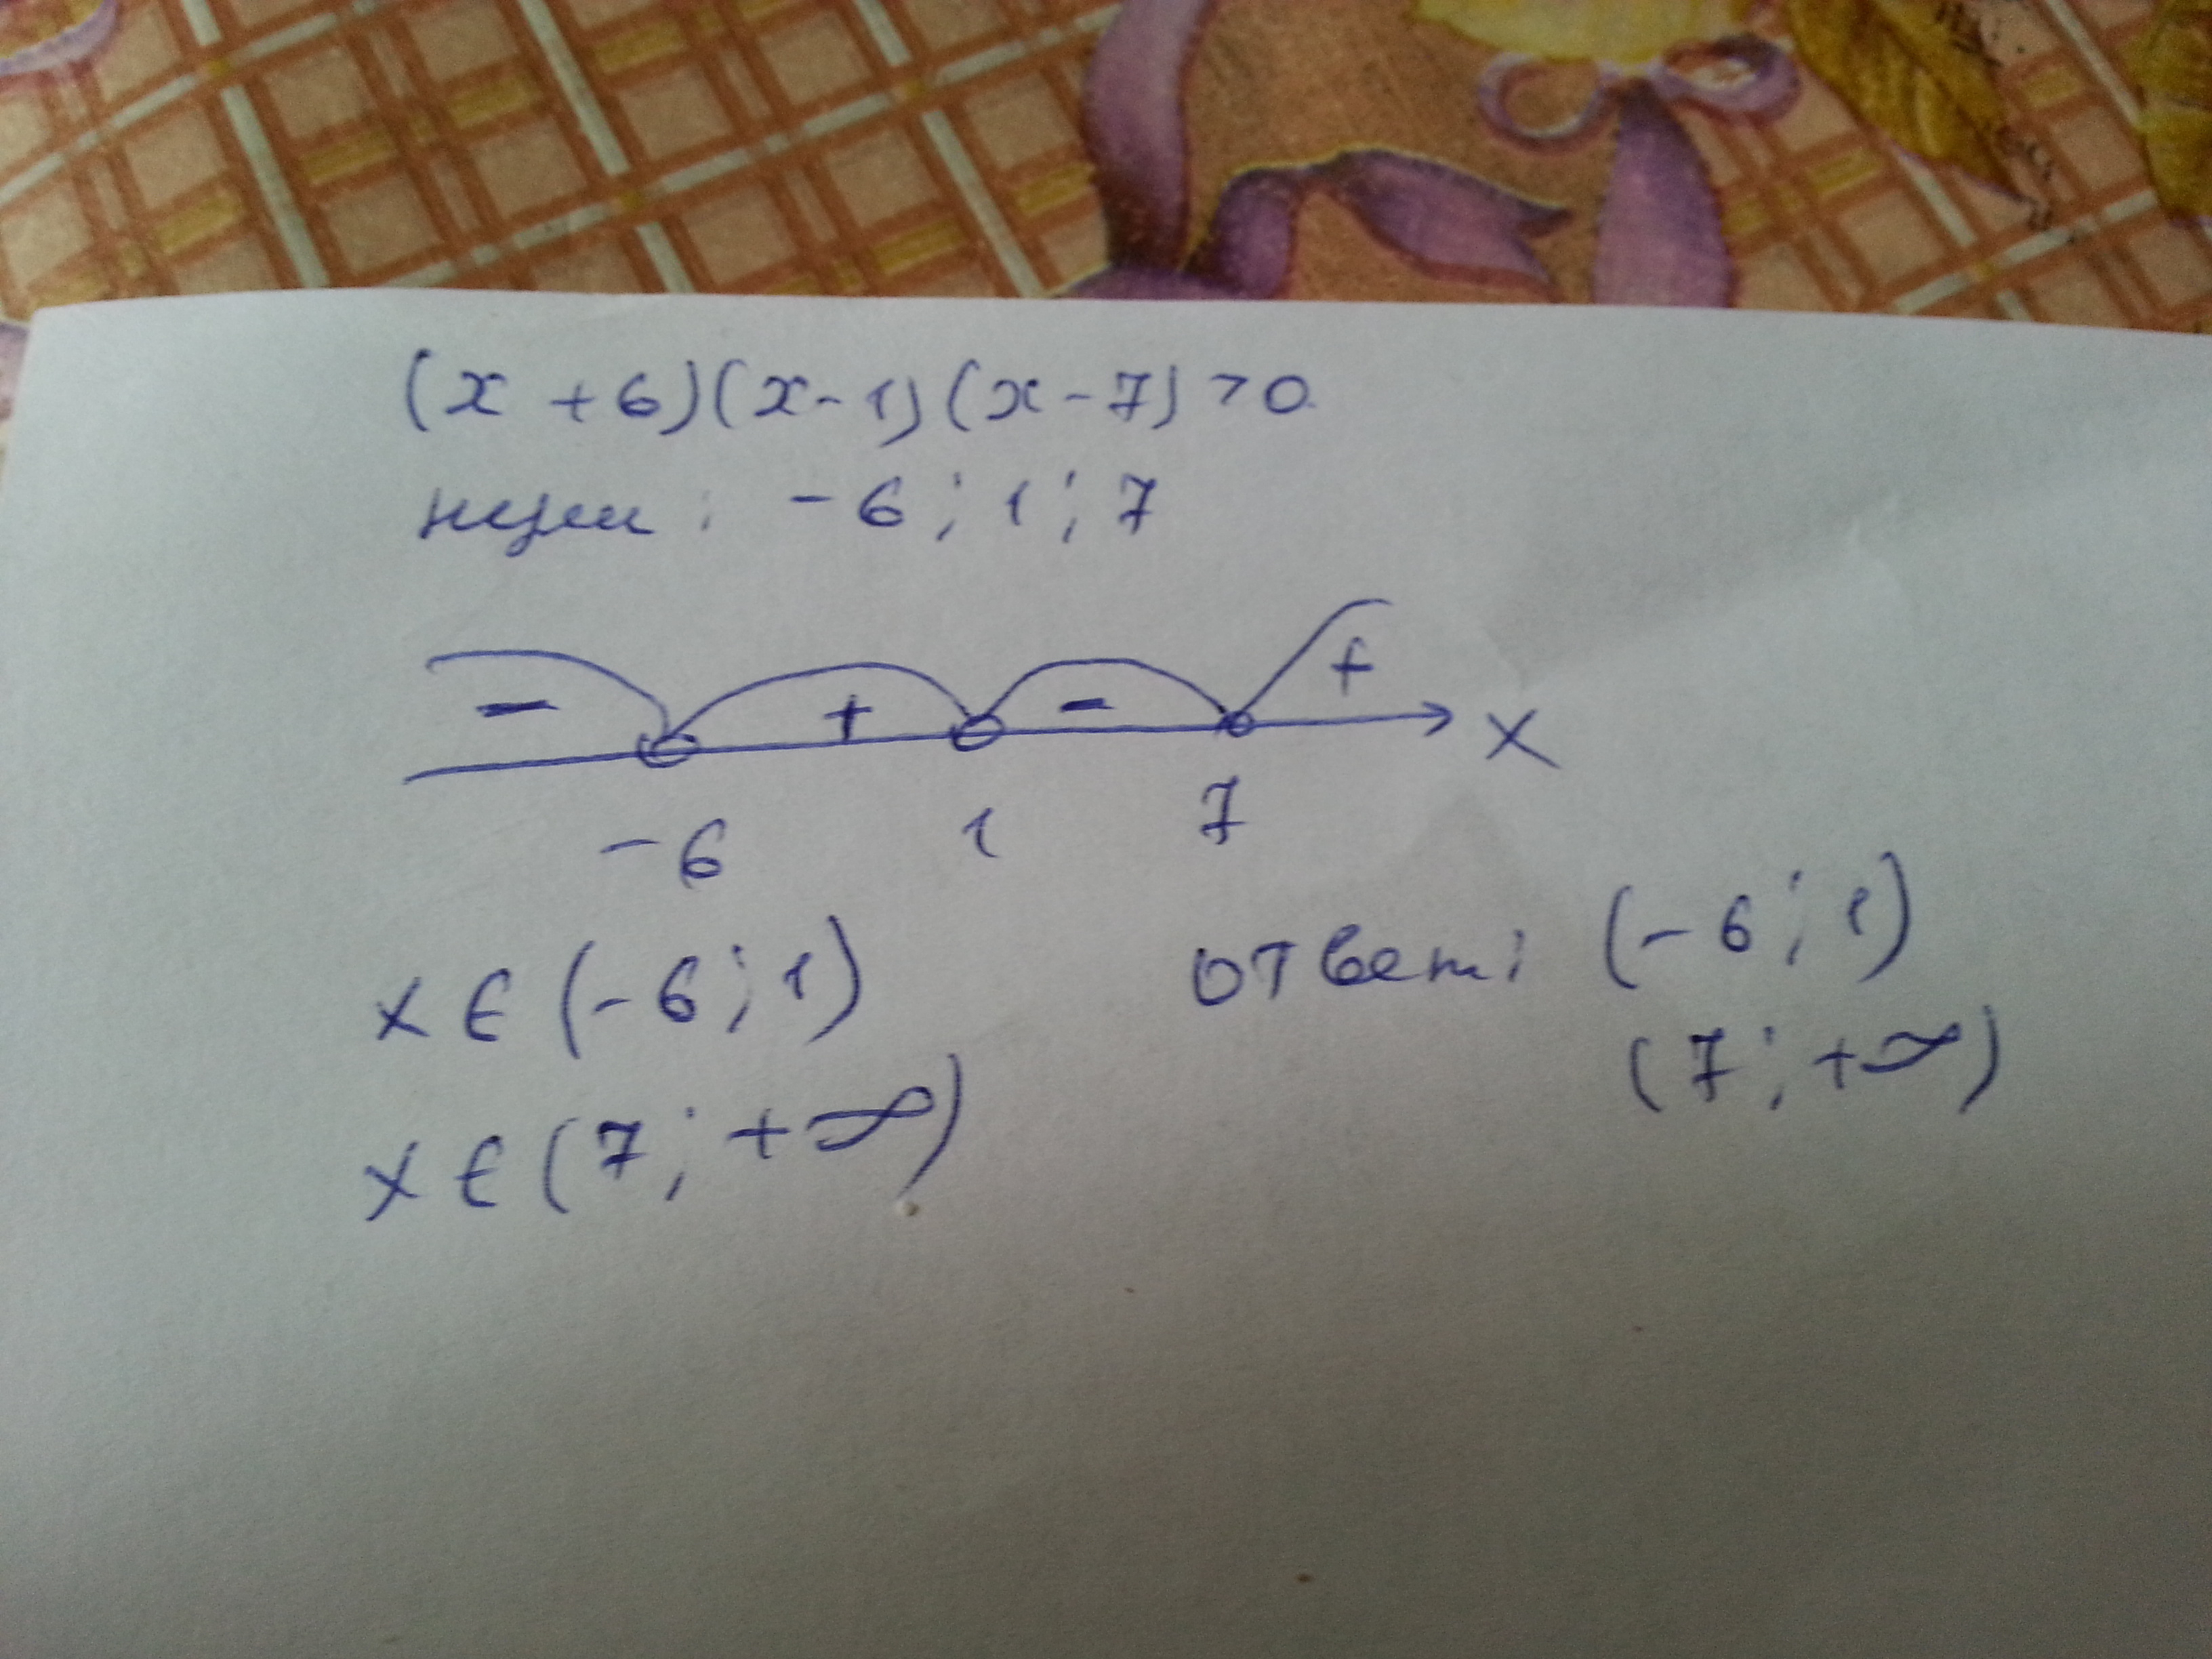 (x + 6)(x - 1)(x - 7) > 0
нули : - 6 ; 1 ; 7
- + - + x
- 6 1 7
x ∈ (- 6 ; 1) ответ : (- 6 ; 1)
x ∈ (7 ; + ∞) (7 ; + ∞)